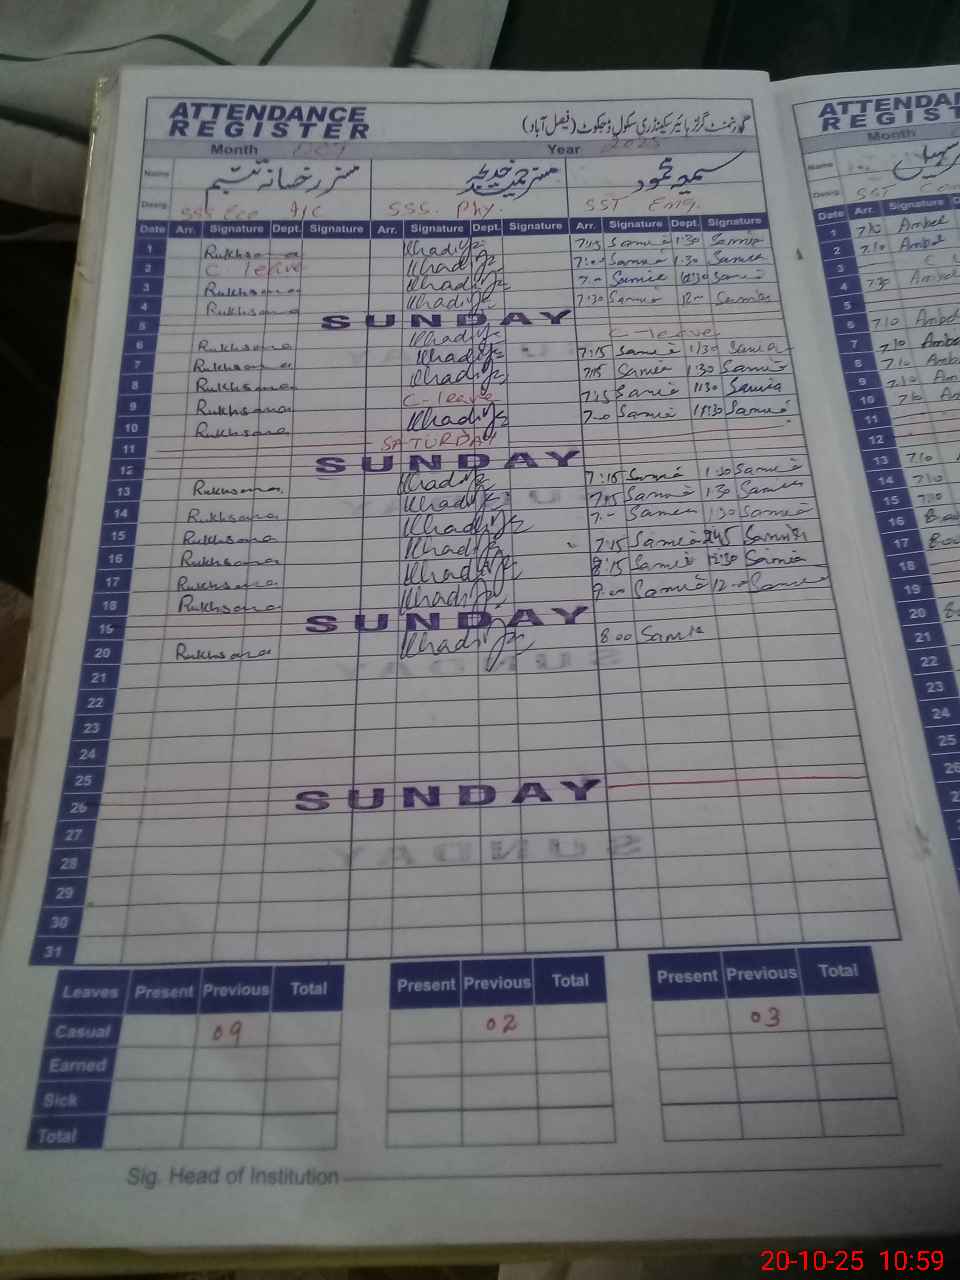 ATTENDANCE REGISTER
گورنمنٹ گرلز ہائیر سیکنڈری سکول ڈجکوٹ (فیصل آباد)
Month Year 2025
Name مسز رخسانہ تبسم مسز خدیجہ سمیہ محمود
Desig. SSS Eco I/C SSS. Phy. SST Eng.
Date Arr. Signature Dept. Signature Arr. Signature Dept. Signature Arr. Signature Dept. Signature
1 Rukhsana Khadija 7:15 Samia 1:30 Samia
2 C-leave Khadija 7:00 Samia 1:30 Samia
3 Rukhsana Khadija 7:00 Samia 12:30 Samia
4 Rukhsana Khadija 7:30 Samia 12:00 Samia
5 SUNDAY
6 Rukhsana Khadija C-leave
7 Rukhsana Khadija 7:15 Samia 1:30 Samia
8 Rukhsana Khadija 7:15 Samia 1:30 Samia
9 Rukhsana C-leave 7:15 Samia 11:30 Samia
10 Rukhsana Khadija 7:20 Samia 11:30 Samia
11 SATURDAY
12 SUNDAY
13 Rukhsana Khadija 7:15 Samia 1:30 Samia
14 Rukhsana Khadija 7:15 Samia 1:30 Samia
15 Rukhsana Khadija 7:00 Samia 1:30 Samia
16 Rukhsana Khadija 7:15 Samia Samia
17 Rukhsana Khadija 8:15 Samia 12:30 Samia
18 Rukhsana Khadija Samia 12:00 Samia
19 SUNDAY
20 Rukhsana Khadija 8:00 Samia
21
22
23
24
25
26 SUNDAY
27
28
29
30
31
Leaves Present Previous Total Present Previous Total Present Previous Total
Casual 09 02 03
Earned
Sick
Total
Sig. Head of Institution
ATTENDAN
REGIST
Month
Name
Desig. SST Com
Date Arr. Signature
1 7:10 Ambel
2 7:10 Ambel
3 C L
4 7:30 Ambel
5
6 7:10 Ambel
7 7:10 Ambe
8 7:10 Amb
9 7:10 Am
10 7:10 An
11
12
13 7:10
14 7:10
15 7:10
16 8:00
17 8:00
18
19
20 8
21
22
23
24
25
26
20-10-25 10:59